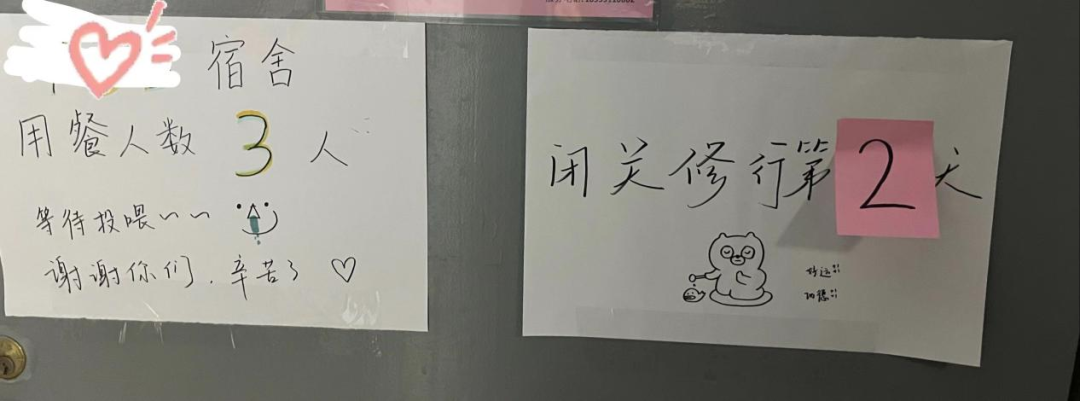 宿舍
用餐人数 3 人
等待投喂~~
谢谢你们，辛苦了
闭关修行第2天
好运
功德